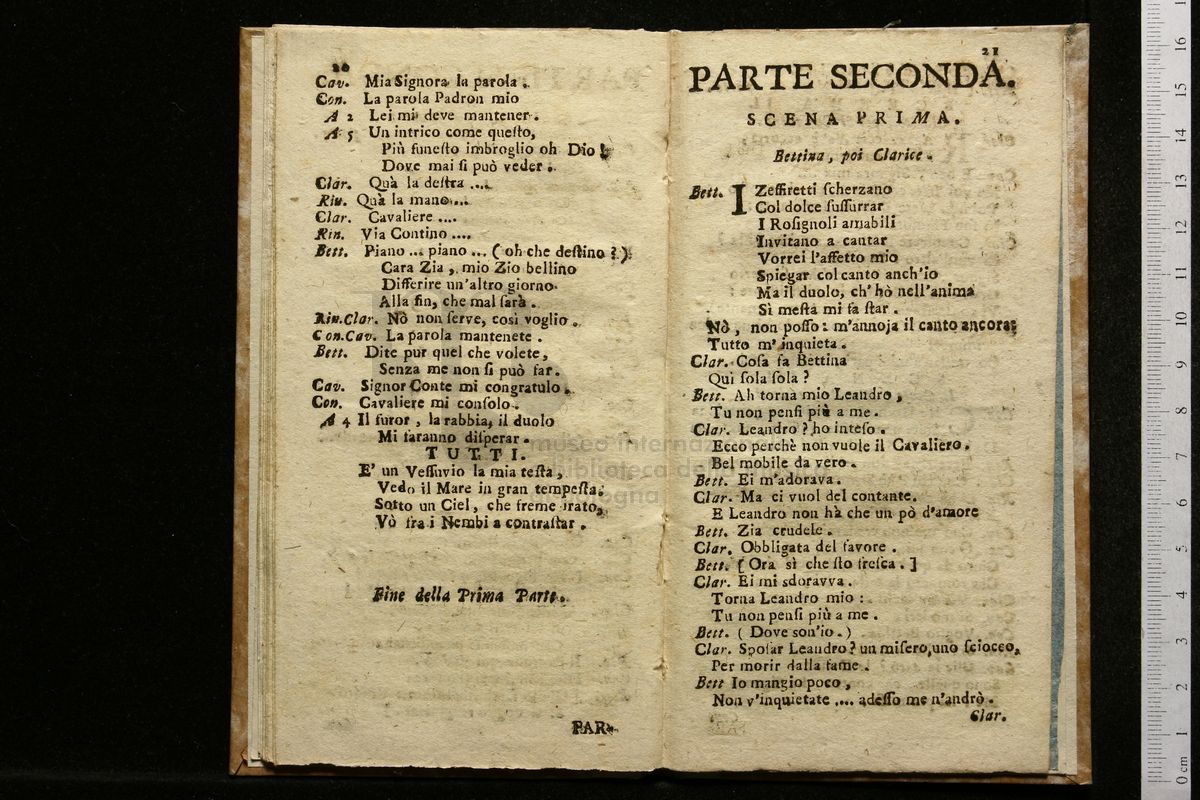 20
Cav. Mia Signora la parola.
Con. La parola Padron mio
A 2 Lei mi deve mantener.
A 5 Un intrico come queſto,
Più funeſto imbroglio oh Dio!
Dove mai ſi può veder.
Clar. Quà la deſtra ....
Rin. Quà la mano....
Clar. Cavaliere ....
Rin. Via Contino ....
Bett. Piano ... piano ... ( oh che deſtino ? )
Cara Zia, mio Zio bellino
Differire un'altro giorno
Alla fin, che mal ſarà.
Rin.Clar. Nò non ſerve, così voglio.
Con.Cav. La parola mantenete.
Bett. Dite pur quel che volete,
Senza me non ſi può far.
Cav. Signor Conte mi congratulo.
Con. Cavaliere mi conſolo.
A 4 Il furor, la rabbia, il duolo
Mi faranno diſperar.
TUTTI.
E' un Veſſuvio la mia teſta,
Vedo il Mare in gran tempeſta,
Sotto un Ciel, che freme irato,
Vò fra i Nembi a contraſtar.
Fine della Prima Parte.
PAR-
21
PARTE SECONDA.
SCENA PRIMA.
Bettina, poi Clarice.
Bett. I Zeffiretti ſcherzano
Col dolce ſuſſurrar
I Roſignoli amabili
Invitano a cantar
Vorrei l'affetto mio
Spiegar col canto anch'io
Ma il duolo, ch' hò nell'anima
Sì meſta mi fa ſtar.
Nò, non poſſo: m'annoja il canto ancora;
Tutto m' inquieta.
Clar. Coſa fa Bettina
Qui ſola ſola ?
Bett. Ah torna mio Leandro,
Tu non penſi più a me.
Clar. Leandro ? ho inteſo.
Ecco perchè non vuole il Cavaliero.
Bel mobile da vero.
Bett. Ei m'adorava.
Clar. Ma ci vuol del contante.
E Leandro non hà che un pò d'amore
Bett. Zia crudele.
Clar. Obbligata del favore.
Bett. [ Ora sì che ſto freſca. ]
Clar. Ei mi sdoravva.
Torna Leandro mio :
Tu non penſi più a me.
Bett. ( Dove son'io. )
Clar. Spoſar Leandro ? un miſero, uno ſciocco,
Per morir dalla fame.
Bett Io mangio poco,
Non v'inquietate .... adeſſo me n'andrò.
Clar.
museo internaz
biblioteca del
bologna
0 cm 1 2 3 4 5 6 7 8 9 10 11 12 13 14 15 16